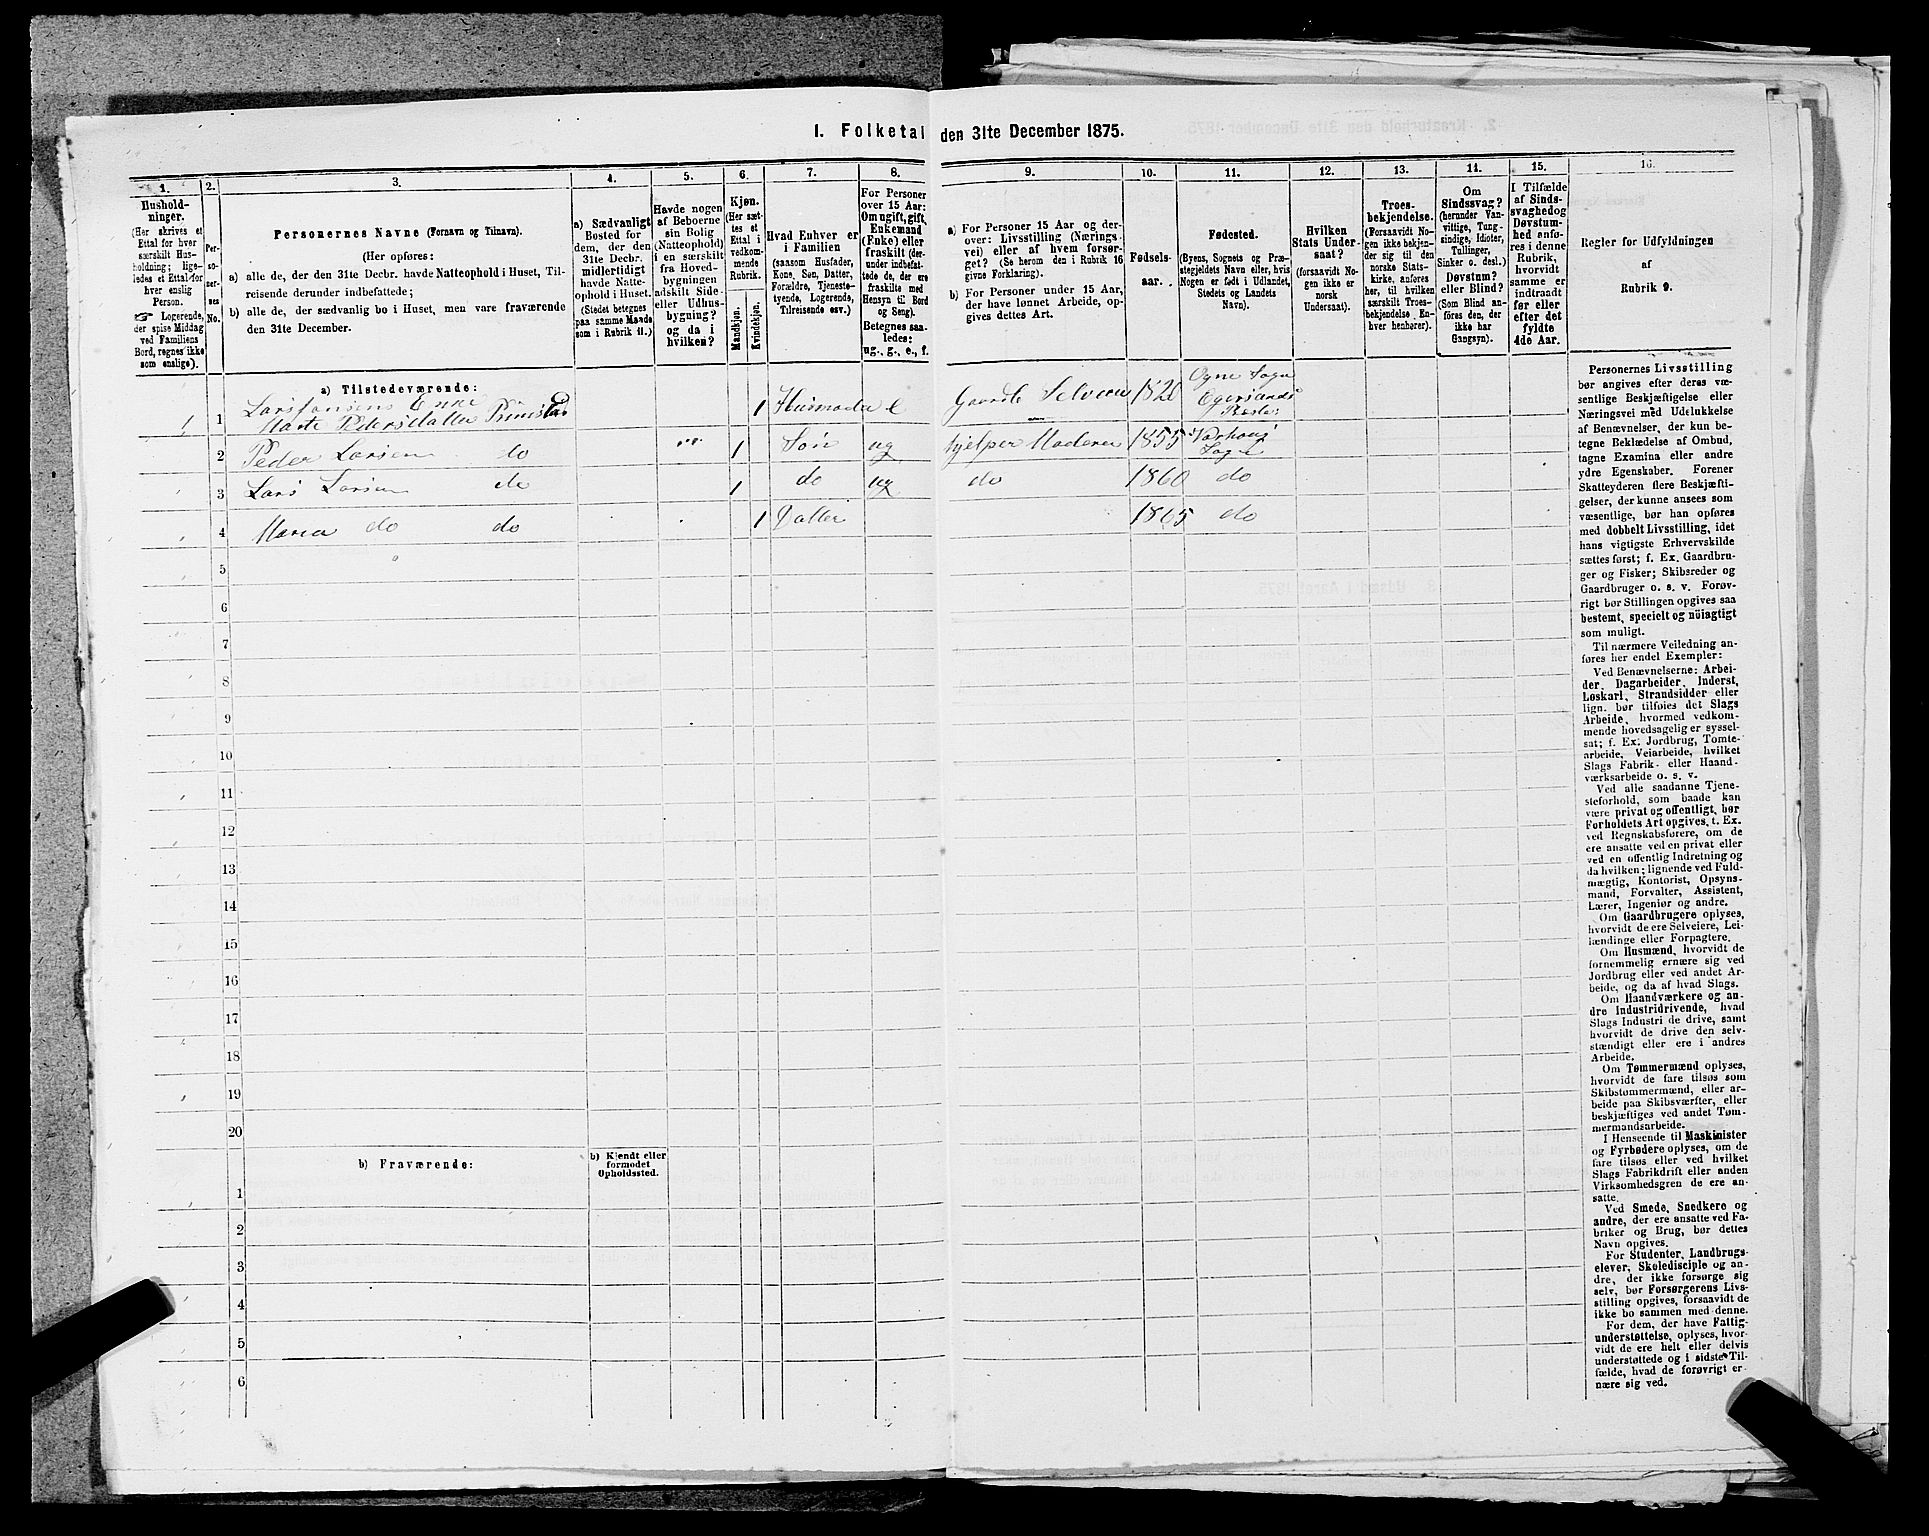 I. Folketal den 31te December 1875.
1.
Hushold-
ninger.
(Her skrives et
Ettal for hver
særskilt Hus-
holdning; lige-
ledes et Ettal for
hver enslig
Person.
☞ Logerende,
der spise Middag
ved Familiens
Bord, regnes ikke
som enslige).
2.
Per-
so-
ner-
nes
No.
3.
Personernes Navne (Fornavn og Tilnavn).
(Her opføres:
a) alle de, der den 31te Decbr. havde Natteophold i Huset, Til-
reisende derunder indbefattede;
b) alle de, der sædvanlig bo i Huset, men vare fraværende
den 31te December.
4.
a) Sædvanligt
Bosted for
dem, der den
31te Decbr.
midlertidigt
havde Natte-
ophold i Huset.
(Stedet betegnes
paa samme Maade
som i Rubrik 11.)
5.
Havde nogen
af Beboerne
sin Bolig
(Natteophold)
i en særskilt
fra Hoved-
bygningen
adskilt Side-
eller Udhus-
bygning?
og da i
hvilken?
6.
Kjøn.
(Her sæt-
tes et
Ettal i
vedkom-
mende
Rubrik.
Mandkjøn.
Kvindekjøn.
7.
Hvad Enhver er
i Familien
(saasom Husfader,
Kone, Søn, Datter,
Forældre, Tjeneste-
tyende, Logerende,
Tilreisende osv.)
8.
For Personer
over 15 Aar:
Om ugift, gift,
Enkemand
(Enke) eller
fraskilt
(derunder indbefat-
tede de, der ere
fraskilte med
Hensyn til Bord
og Seng).
Betegnes saa-
ledes:
ug., g., e., f.
9.
a) For Personer 15 Aar og der-
over: Livsstilling (Nærings-
vei) eller af hvem forsør-
get? (Se herom den i Rubrik 16
givne Forklaring).
b) For Personer under 15 Aar,
der have lønnet Arbeide, op-
gives dettes Art.
10.
Fødsels-
aar.
11.
Fødested.
(Byens, Sognets og Præ-
stegjeldets Navn eller, hvis
Nogen er født i Udlandet,
Stedets og Landets
Navn).
12.
Hvilken
Stats Under-
saat?
(forsaavidt No-
gen ikke er
norsk
Undersaat).
13.
Troes-
bekjendelse.
(Forsaavidt No-
gen ikke bekjen-
der sig til den
norske Stats-
kirke, anføres
her, til hvilken
særskilt Troes-
bekjendelse En-
hver henhører).
14.
Om
Sindssvag?
(herunder Van-
vittige, Tung-
sindige, Idioter,
Tullinger,
Sinker o. desl.)
Døvstum?
eller Blind?
(Som Blind an-
føres den, der
ikke har
Gangsyn).
15.
I Tilfælde
af Sinds-
svaghed og
Døvstum-
hed anfø-
res i denne
Rubrik,
hvorvidt
samme er
indtraadt
før eller
efter det
fyldte
4de Aar.
16.
Regler for Udfyldningen
af
Rubrik 9.
a) Tilstedeværende:
Enke
1 1 Marte Pedersdatter 1 Husmoder e Gaardb Selveier 1820 Ogne Sogn
Egersunds
2 Peder Larsen do " 1 Søn ug hjelper Moderen 1855 Varhoug
Sogn
3 Lars Larsen do 1 do ug do 1860 do
4 Maria do do 1 Datter 1865 do
5
6
7
8
9
10
11
12
13
14
15
16
17
18
19
20
b) Fraværende:
b) Kjendt eller
formodet
Opholdssted.
1
2
3
4
5
6
Personernes Livsstilling
bør angives efter deres væ-
sentlige Beskjæftigelse eller
Næringsvei med Udelukkelse
af Benævnelser, der kun be-
tegne Beklædelse af Ombud,
tagne Examina eller andre
ydre Egenskaber. Forener
Skatteyderen flere Beskjæfti-
gelser, der kunne ansees som
væsentlige, bør han opføres
med dobbelt Livsstilling, idet
hans vigtigste Erhvervskilde
sættes først; f. Ex. Gaardbru-
ger og Fisker; Skibsreder og
Gaardbruger o. s. v. Forøv-
rigt bør Stillingen opgives saa
bestemt, specielt og nöiagtigt
som muligt.
Til nærmere Veiledning an-
føres her endel Exempler:
Ved Benævnelserne: Arbei-
der, Dagarbeider, Inderst,
Løskarl, Strandsidder eller
lign. bør tilføies det Slags
Arbeide, hvormed vedkom-
mende hovedsagelig er syssel-
sat; f. Ex. Jordbrug, Tomte-
arbeide, Veiarbeide, hvilket
Slags Fabrik- eller Haand-
værksarbeide o. s. v.
Ved alle saadanne Tjene-
steforhold, som baade kan
være privat og offentligt, bør
Forholdets Art opgives, t. Ex.
ved Regnskabsførere, om de
ere ansatte ved en privat eller
ved en offentlig Indretning og
da hvilken; lignende ved Fuld-
mægtig, Kontorist, Opsyns-
mand, Forvalter, Assistent,
Lærer, Ingeniør og andre.
Om Gaardbrugere oplyses,
hvorvidt de ere Selveiere, Lei-
lændinge eller Forpagtere.
Om Husmænd, hvorvidt de
fornemmelig ernære sig ved
Jordbrug eller ved andet Ar-
beide, og da af hvad Slags.
Om Haandværkere og an-
dre Industridrivende, hvad
Slags Industri de drive, samt
hvorvidt de drive den selv-
stændigt eller ere i andres
Arbeide.
Om Tømmermænd oplyses,
hvorvidt de fare tilsøs som
Skibstømmermænd, eller ar-
beide paa Skibsværfter, eller
beskjæftiges ved andet Tøm-
mermandsarbeide.
I Henseende til Maskinister
og Fyrbødere oplyses, om de
fare tilsøs eller ved hvilket
Slags Fabrikdrift eller anden
Virksomhedsgren de ere an-
satte.
Ved Smede, Snedkere og
andre, der ere ansatte ved Fa-
briker og Brug, bør dettes
Navn opgives.
For Studenter, Landbrugs-
elever, Skoledisciple og an-
dre, der ikke forsørge sig
selv, bør Forsørgerens Livs-
stilling opgives, forsaavidt de
ikke bo sammen med denne.
For dem, der have Fattig-
understøttelse, oplyses, hvor-
vidt de ere helt eller delvis
understøttede og i sidste Til-
fælde, hvad de forøvrigt er-
nære sig ved.